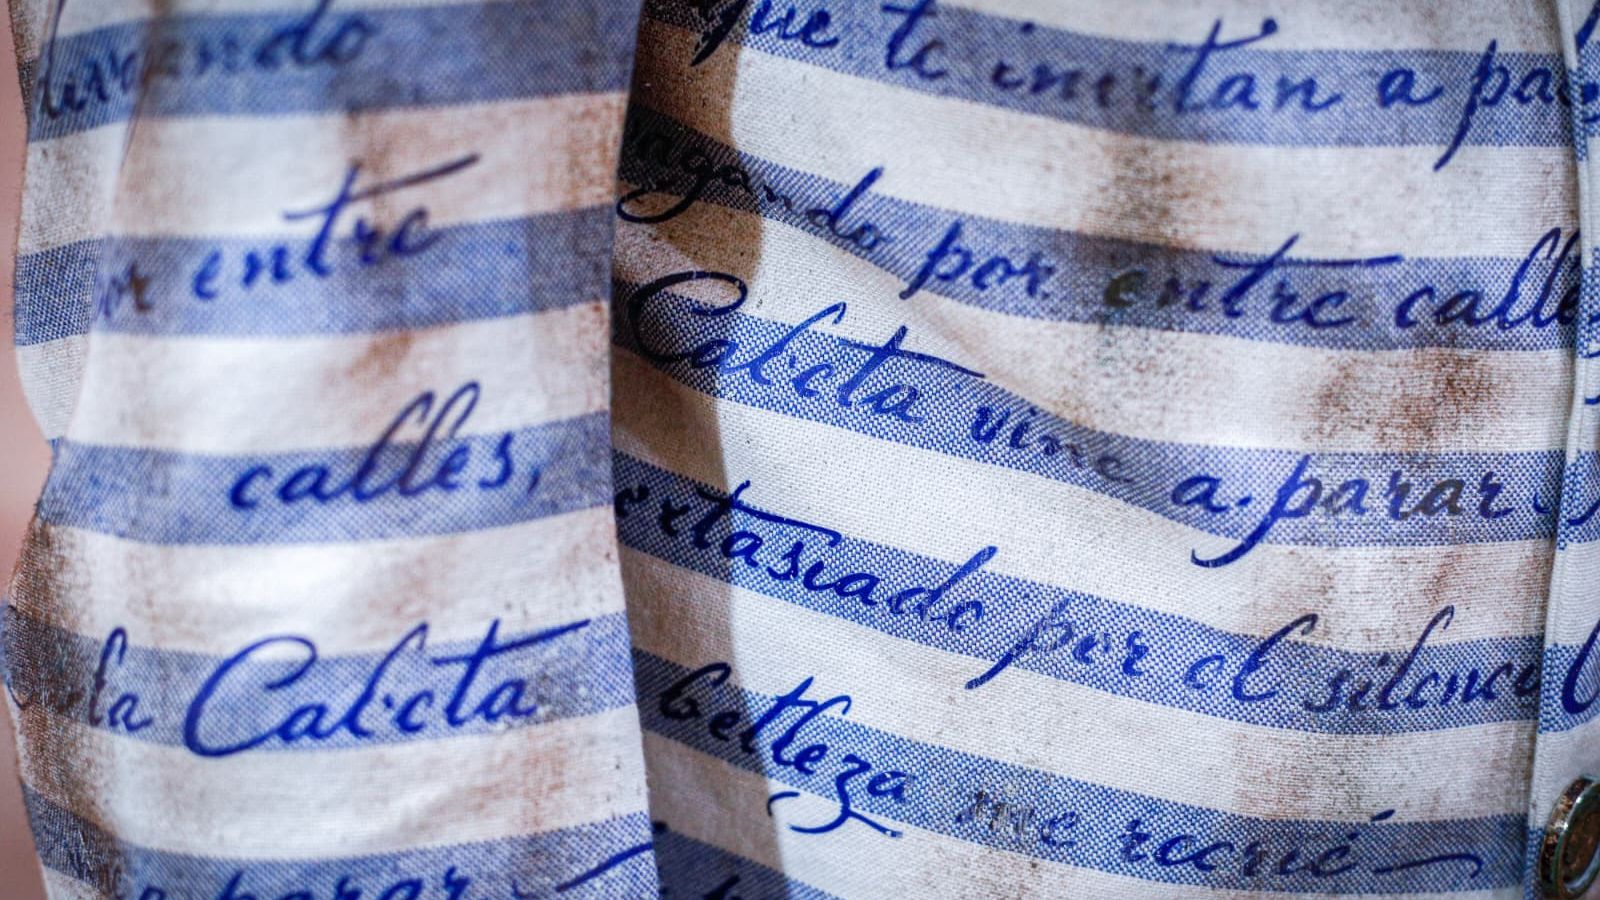 por entre
calles,
la Caleta
a parar
que te invitan a
vagando por entre
Caleta vine a parar
extasiado por el silencio
belleza me recreé